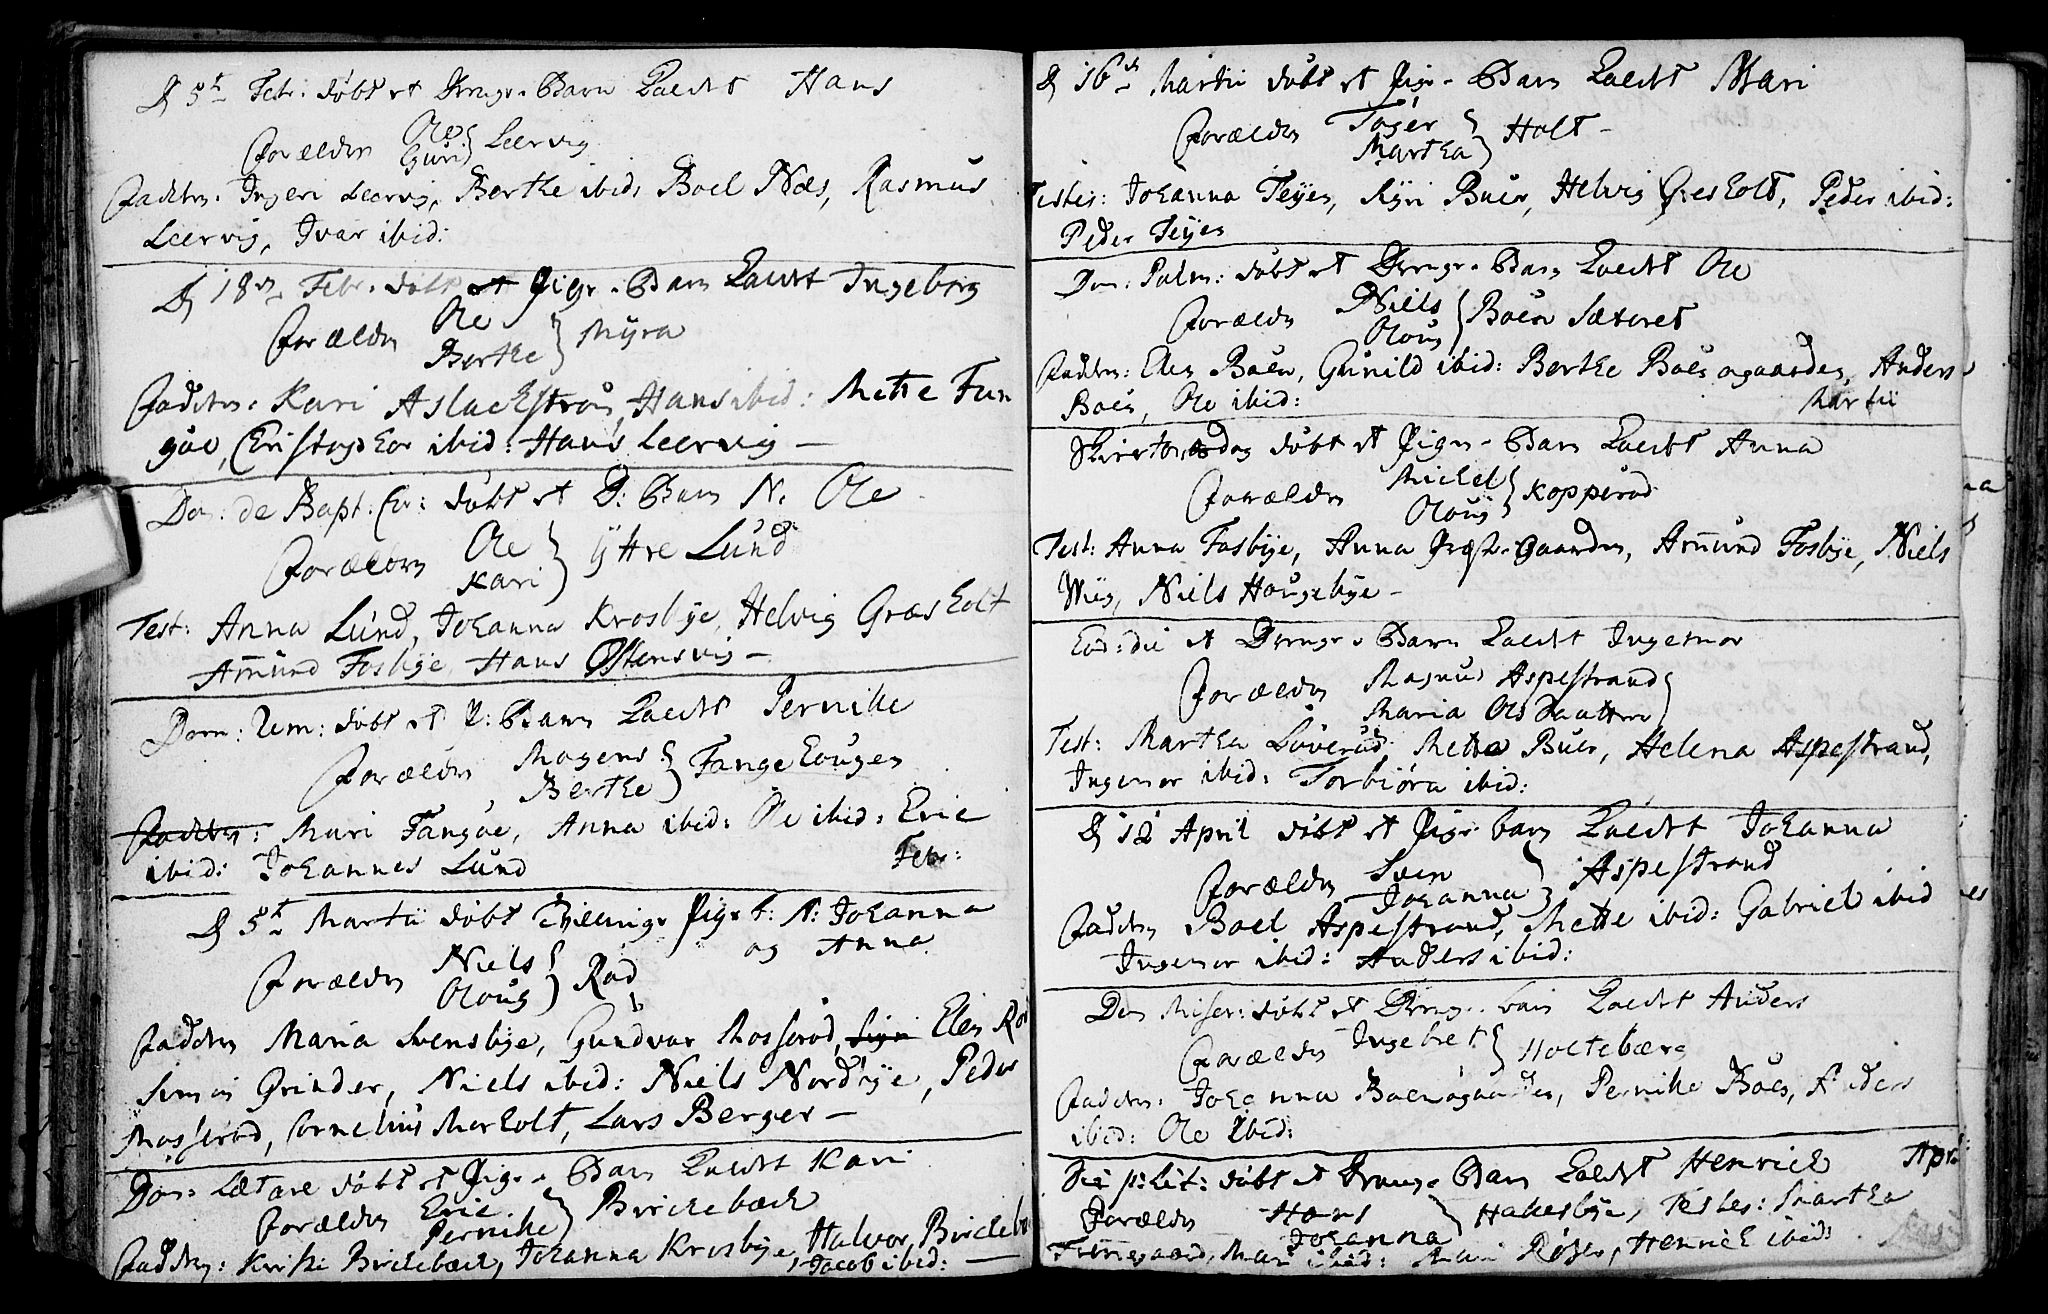 D 5t Febr: døbt et Drenge-Barn kaldet Hans
Forældre Ole Guri } Leervig
Faddere. Ingeri Leervig, Berthe ibid: Boel Næs, Rasmus
Leervig, Ivar ibid:
D 18de Febr. døbt et Pige-Barn kaldet Ingeborg
Forældre Ole Berthe } Myra
Faddere: Kari Aslackstrøm, Hans ibid: Mette Tan
gae, Christopher ibid: Hans Leervig —
Dom: de Bapt. Chr: døbt et D: Barn N. Ole
Forældre Ole Kari } Yttre Lund
Test: Anna Lund, Johanna Krosbye, Helvig Græsholt
Amund Fosbye, Hans Østensvig —
Dom: Rem: døbt et P: Barn kaldet Pernille
Forældre Mogens Berthe } Tangehougen
Faddere: Mari Tangae, Anna ibid: Ole ibid: Eric
ibid: Johannes Lund Febr:
D 5t Martii døbt Tvillinge Pige b: N: Johanna
og Anna
Forældre Niels Oloug } Rød
Faddere Maria Svensbye, Gundvor Mosserød, Sigri Elen Rød
Simon Grinder, Niels ibid: Niels Nordbye, Peder
Mosserød, Cornelius Morholt, Lars Berger —
Dom: Lætare døbt et Pige-Barn kaldet Kari
Forældre Eric Pernille } Birchebæch
Faddere: Birchebæch, Johanna Krosbye, Halvor Birchebæ
Jacob ibid: —
D 16de Martii døbt et Pige-Barn kaldet Mari
Forældre Tøger Martha } Holt —
Testes: Johanna Teyen, Kyri Buer, Helvig Græsholt, Peder ibid:
Peder Teyen
Dom: Palm: døbt et Drenge-Barn kaldet Ole
Forældre Niels Oloug } Boen Sæteret
Faddere: Elen Boen, Gunild ibid: Berthe Boen agaarden, Anders
Boen, Ole ibid: Martii
Skiertorsdag døbt et Pige-Barn kaldet Anna
Forældre Michel Oloug } Kopperød
Test: Anna Fosbye, Anna Præste-Gaarden, Amund Fosbye, Niels
Wiig, Niels Hougebye —
Eod: die et Drenge-Barn kaldet Ingemor
Forældre Magnus Aspestrand Maria Ols Daatter }
Test: Martha Løverød, Mette Buer, Helena Aspestrand,
Ingemor ibid: Torbiørn ibid:
D 12 April døbt et Pige barn kaldet Johanna
Forældre Sven Johanna } Aspestrand
Faddere Boel Aspestrand, Mette ibid: Gabriel ibid
Ingemor ibid: Anders ibid:
Dom Miser: døbt et Drenge-barn kaldet Anders
Forældre Ingebret } Holtebærg
Faddere: Johanna Boenagaarden, Pernille Boen, Anders
ibid: Ole ibid:
Die p: Lit: døbt et Drenge-Barn kaldet Henrich April:
Forældre Hans Johanna } Hakesbye, Testes: Martha
Mari ibid: Henrich ibid: